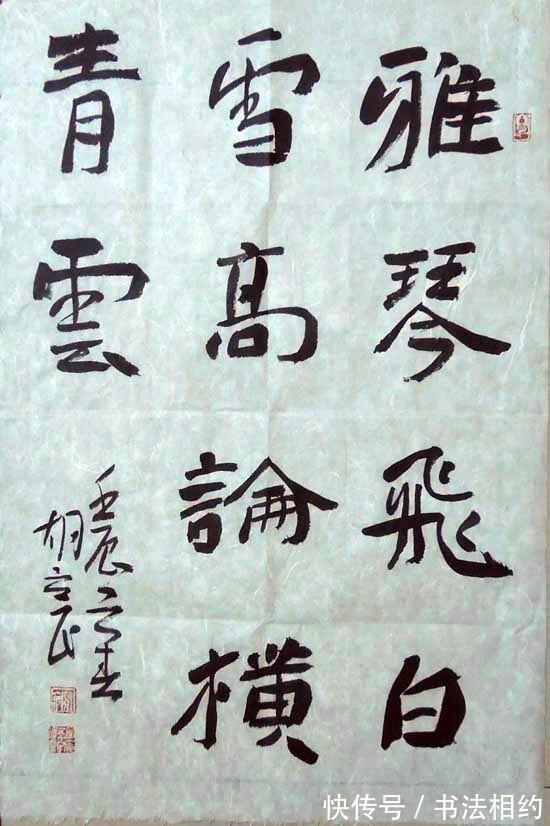 雅琴飛白
雪高論橫
青雲
壬辰之春
胡立民
快传号 / 书法相约